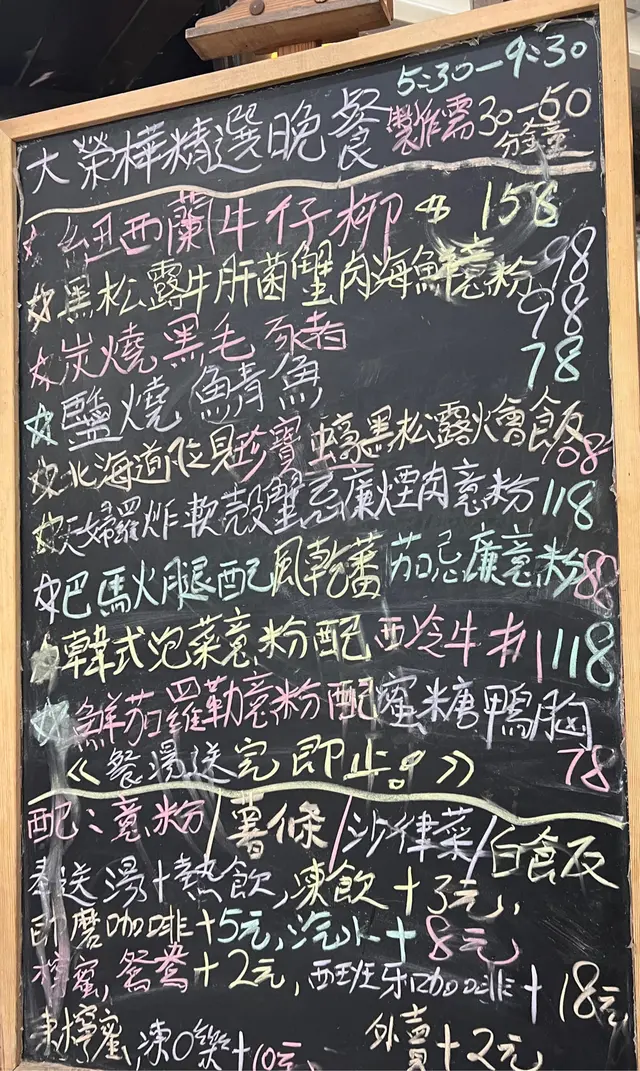 5:30-9:30
大榮樺精選晚餐 製作需30-50分鐘
紐西蘭牛仔柳 $158
黑松露牛肝菌蟹肉海鮮意粉 98
炭燒黑毛豬 98
鹽燒鯖魚 78
北海道位見珍寶蠔黑松露燴飯 108
天婦羅炸軟殼蟹忌廉煙肉意粉 118
巴馬火腿配風乾蕃茄忌廉意粉 88
韓式泡菜意粉配西冷牛扒 118
鮮茄羅勒意粉配蜜糖鴨胸
《餐湯送完即止!》 78
配:意粉/薯條/沙律菜/白食反
送湯+熱飲,凍飲+3元,
即磨咖啡+5元,汽水+8元
檸蜜,鴛鴦+2元,西班牙咖啡+18元
凍檸蜜,凍O樂+10元 外賣+2元